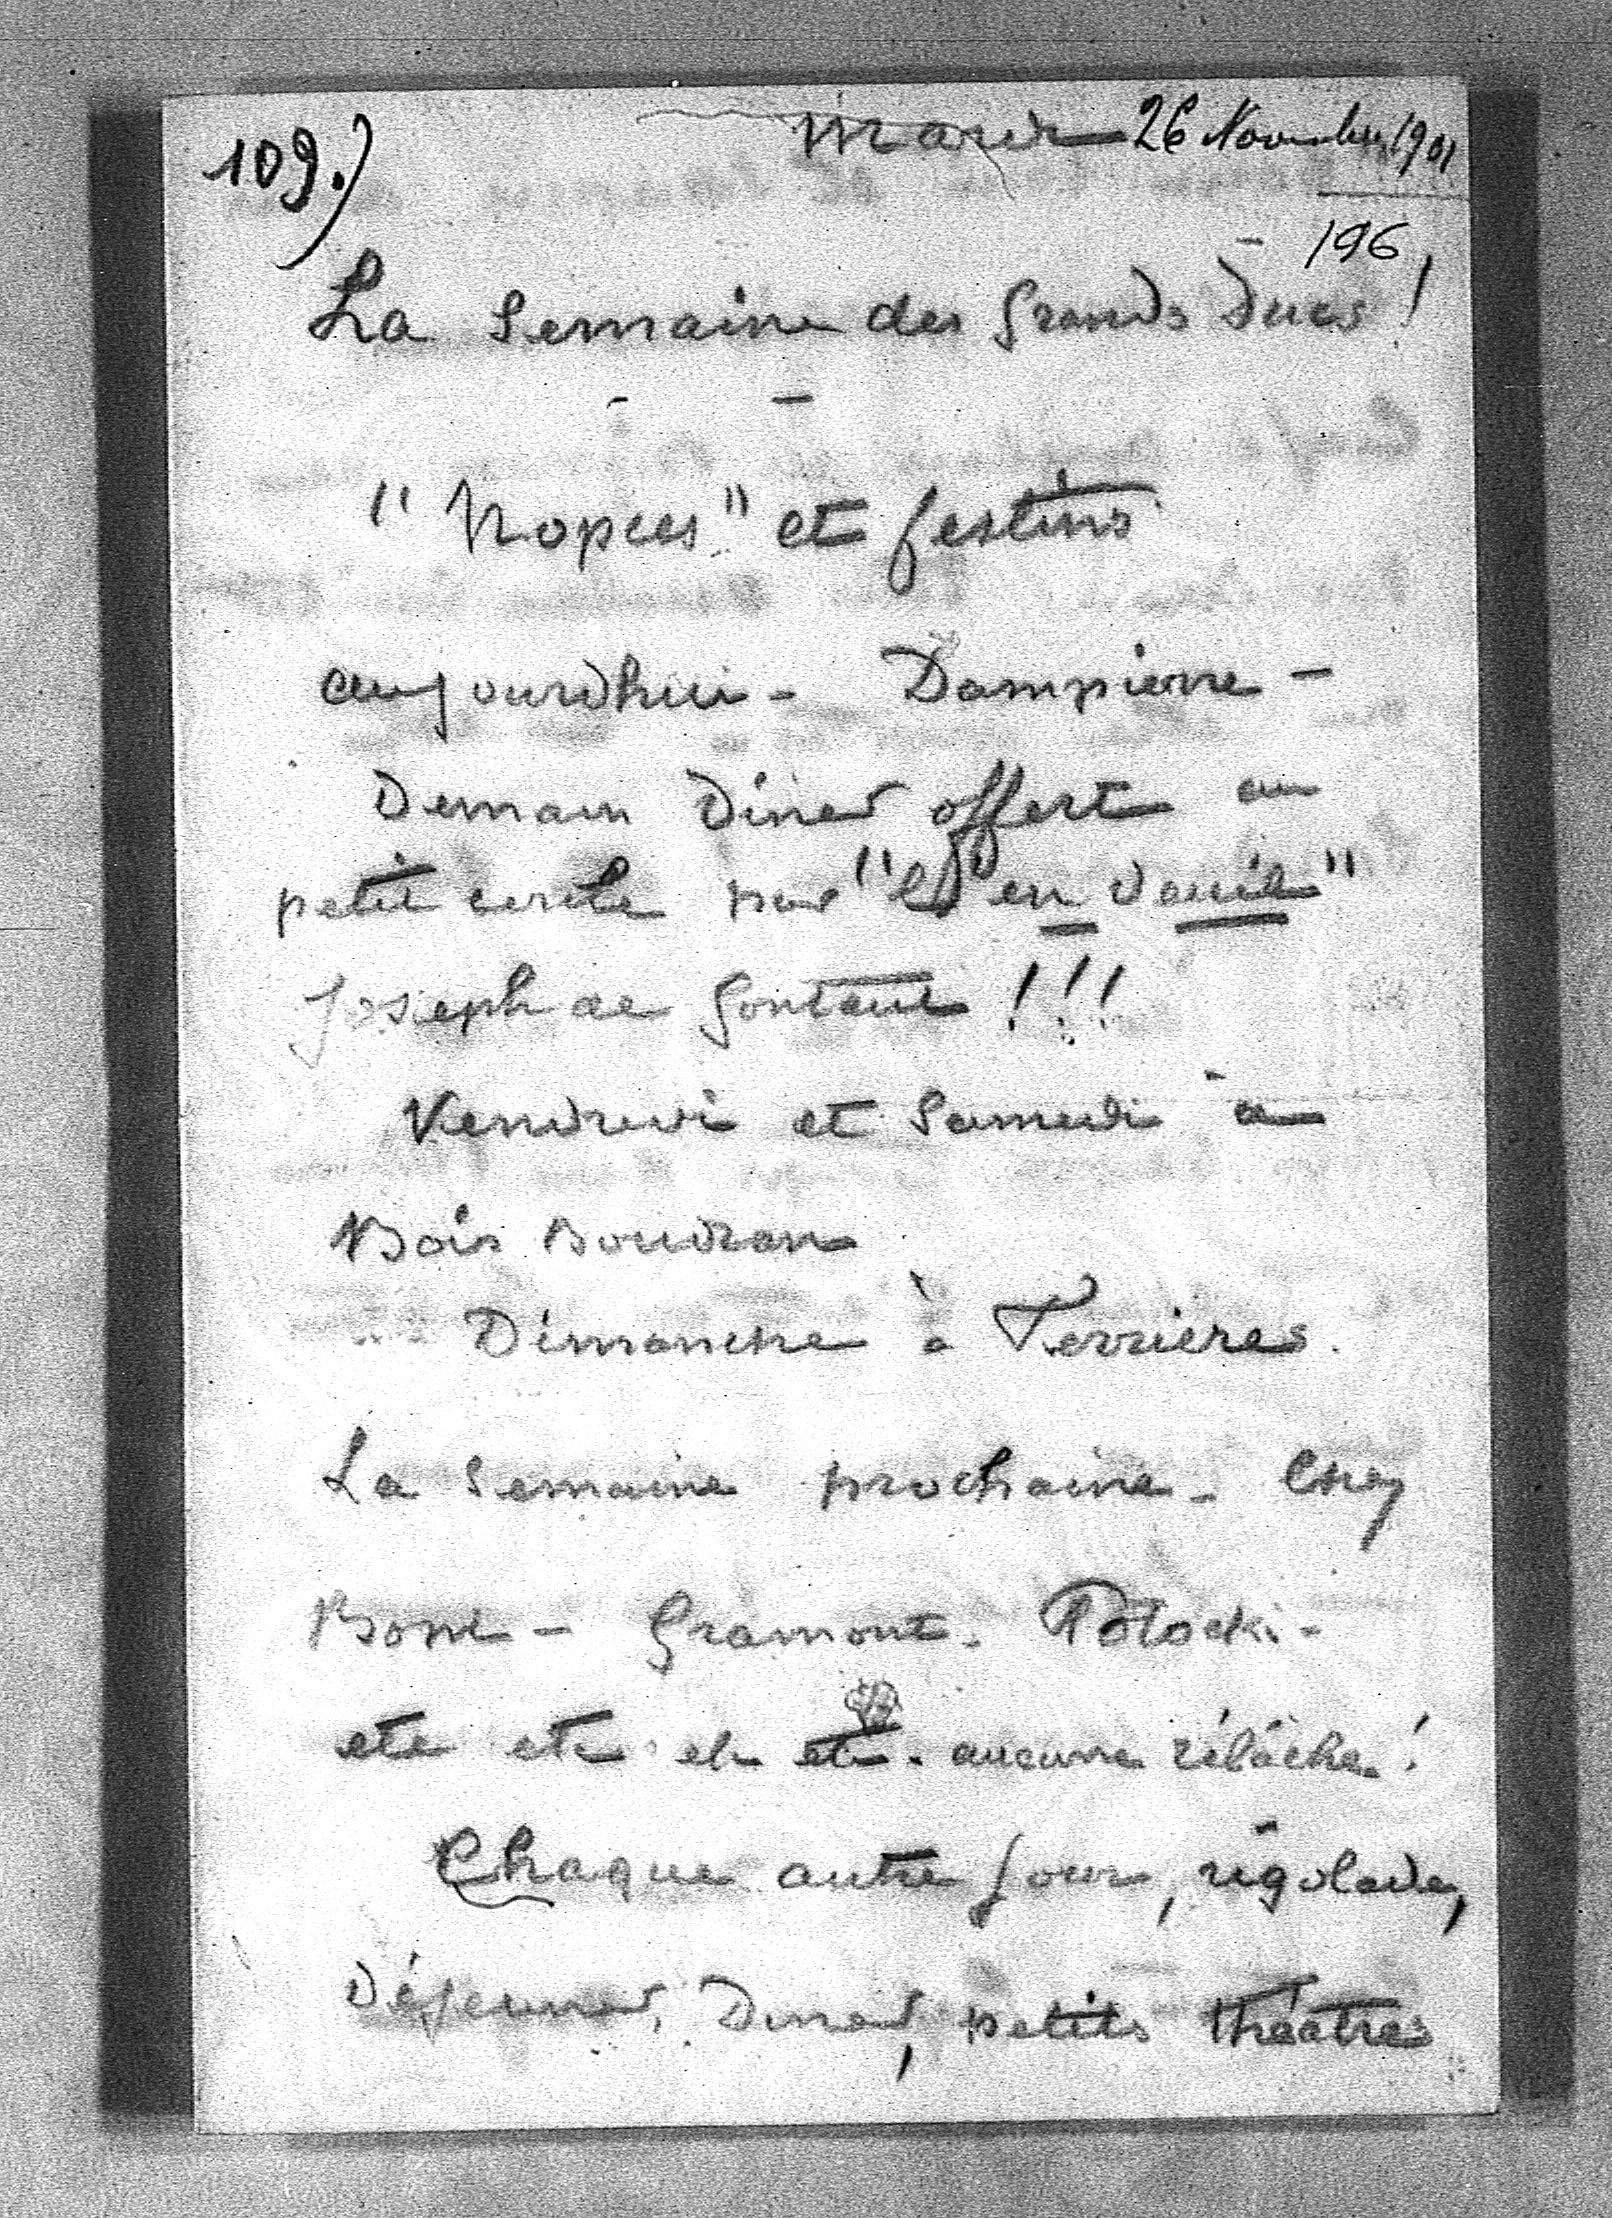 109.)
Mardi 26 Novembre 1901
196
La Semaine des Grands Ducs !
"Nopces" et festins
aujourdhui - Dampierre -
Demain Diner offert au
petit cercle par "en Douil"
Joseph de Gontaut !!!
Vendredi et Samedi à
Bois Boudran
Dimanche à Ferrières.
La Semaine prochaine - Chez
Boni - Gramont - Potocki -
etc etc etc etc. aucune relâche !
Chaque autre jour, rigolade,
Déjeuner, Diner, petits théâtres